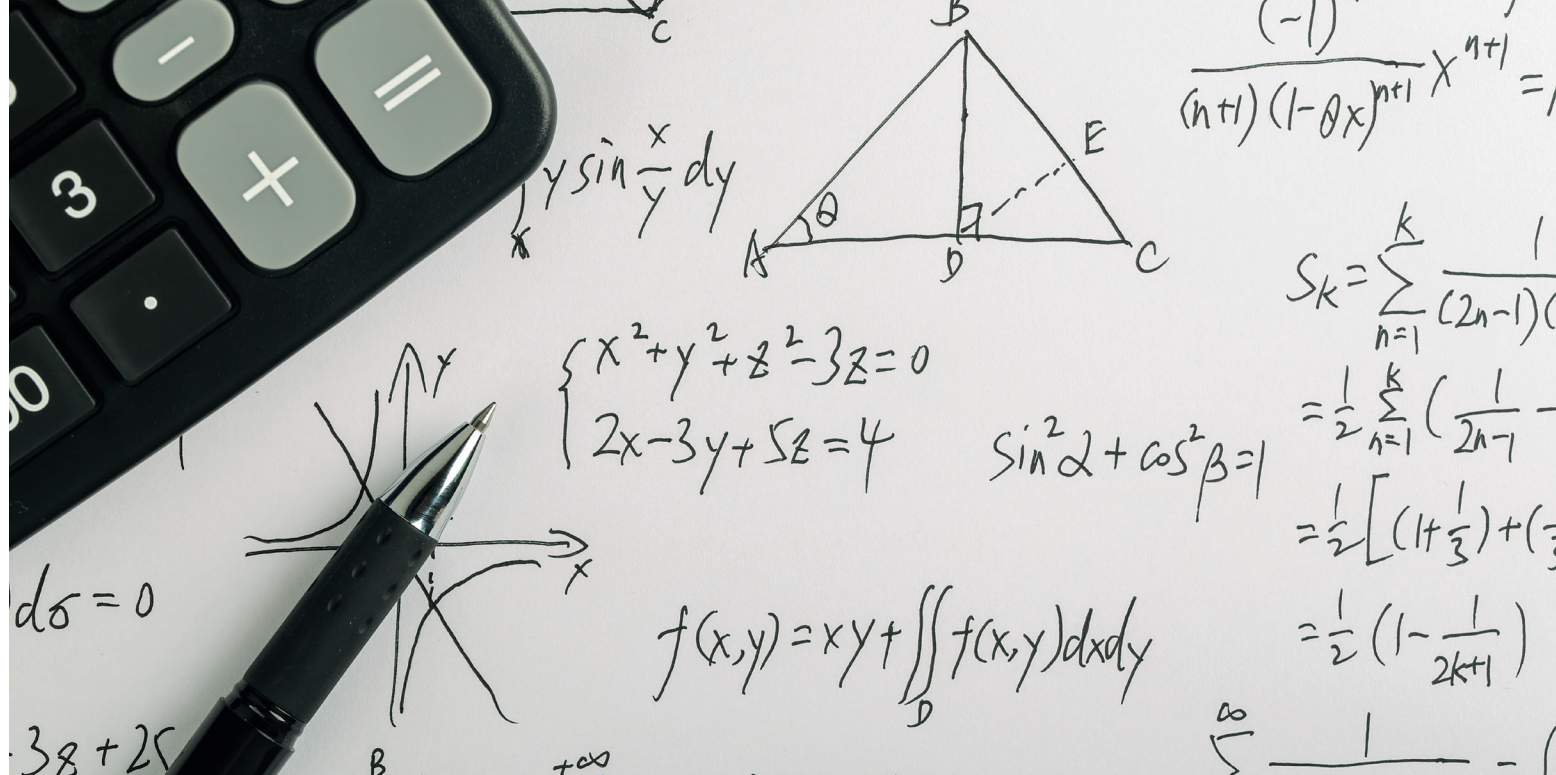 C
−
=
+
3
.
y sin x/y dy
x
B
E
A θ D C
(n+1)(1-θx)^{n+1} x^{n+1} =
S_k = Σ_{n=1}^{k} 1/(2n-1)(
= 1/2 Σ_{n=1}^{k} (1/(2n-1) -
= 1/2 [(1+1/3)+(
= 1/2 (1 - 1/(2k+1))
y
x
{x²+y²+z²-3z=0
2x-3y+5z=4
sin²α + cos²β=1
dσ = 0
f(x,y) = xy + ∬_D f(x,y)dxdy
3z + 25
B
+∞
∞
Σ 1